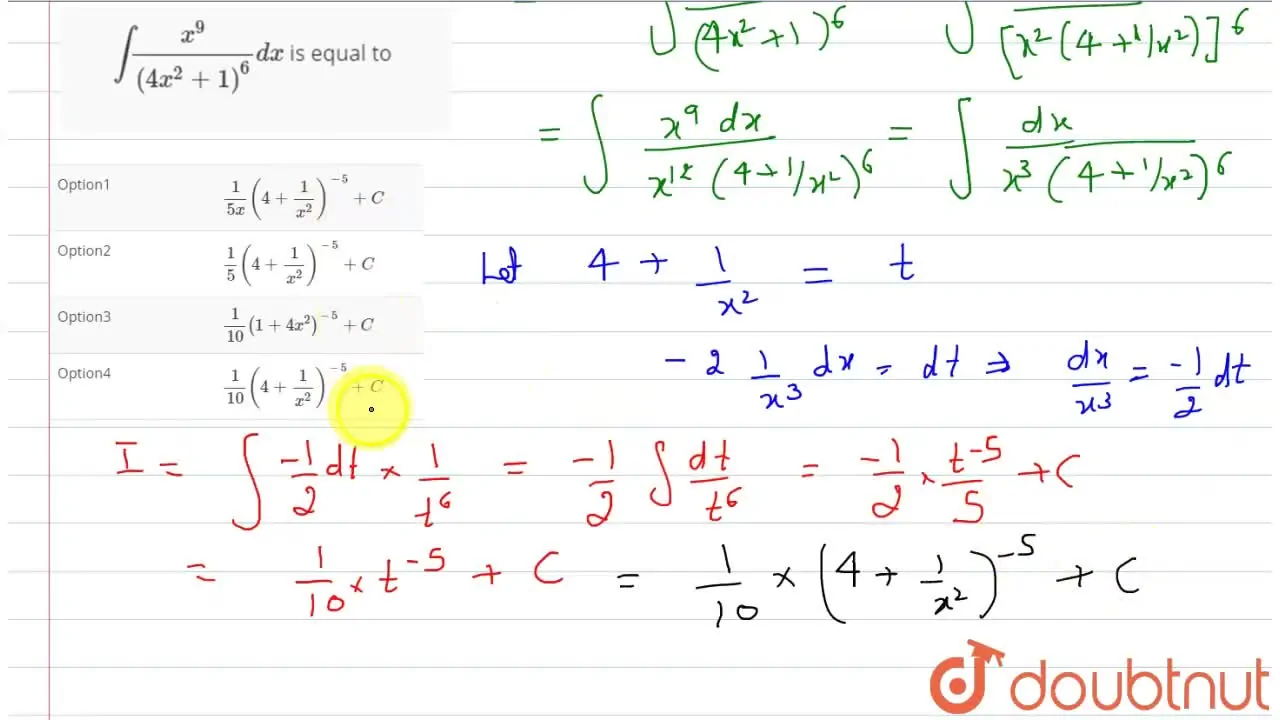 ∫ x⁹/(4x² + 1)⁶ dx is equal to
Option1 1/5x (4 + 1/x²)⁻⁵ + C
Option2 1/5 (4 + 1/x²)⁻⁵ + C
Option3 1/10 (1 + 4x²)⁻⁵ + C
Option4 1/10 (4 + 1/x²)⁻⁵ + C
∫ (4x² + 1)⁶ ∫ [x² (4 + 1/x²)]⁶
= ∫ x⁹ dx / x¹² (4 + 1/x²)⁶ = ∫ dx / x³ (4 + 1/x²)⁶
Let 4 + 1/x² = t
- 2 1/x³ dx = dt ⇒ dx/x³ = -1/2 dt
I = ∫ -1/2 dt × 1/t⁶ = -1/2 ∫ dt/t⁶ = -1/2 × t⁻⁵/5 + C
= 1/10 × t⁻⁵ + C = 1/10 × (4 + 1/x²)⁻⁵ + C
doubtnut